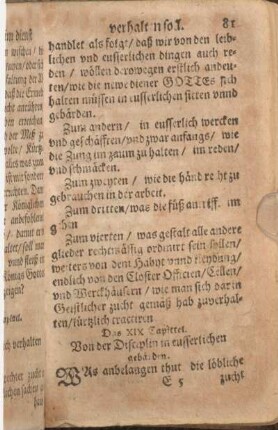 verhalten sol. 81
handlet als folgt / daß wir von den leib-
lichen vnd eusserlichen dingen auch re-
den / wöllen derowegen erstlich andeu-
ten / wie die newe diener GOTTES sich
halten müssen in eusserlichen sitten vnnd
gebärden.
Zum andern / in eusserlich wercken
vnd geschäfften / vnd zwar anfangs / wie
die Zung im zaum zu halten / im reden /
vnd schmäcken.
Zum zweyten / wie die händ recht zu
gebrauchen in der arbeit.
Zum dritten / was die füß antriff. im
gehen
Zum vierten / was gestalt alle andere
glieder rechtmässig ordinirt sein sollen /
weiters von dem Habyt vnnd kleydung /
endlich von den Closter Officien / Cellen /
vnd Werckhäusern / wie man sich darin
Geistlicher zucht gemäß hab zuverhal-
ten / kürtzlich tractiren
Das XIX. Capittel.
Von der Disciplin in eusserlichen
gebärden.
WAs anbelangen thut die löbliche
E 5 zucht